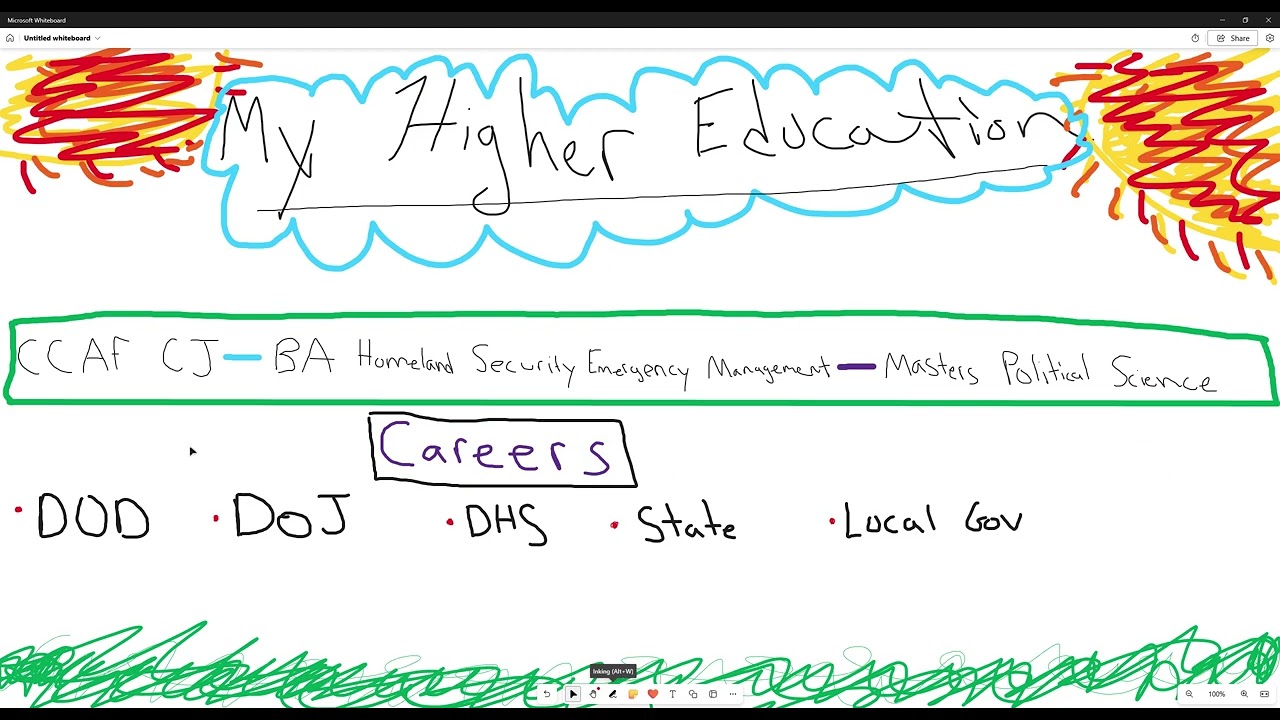 Microsoft Whiteboard
Untitled whiteboard
Share
My Higher Education
CCAF CJ - BA Homeland Security Emergency Management - Masters Political Science
Careers
• DOD • DOJ • DHS • State • Local Gov
Inking (Alt+W)
100%